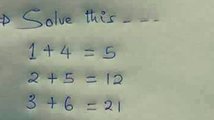 Solve this - - - -
1 + 4 = 5
2 + 5 = 12
3 + 6 = 21